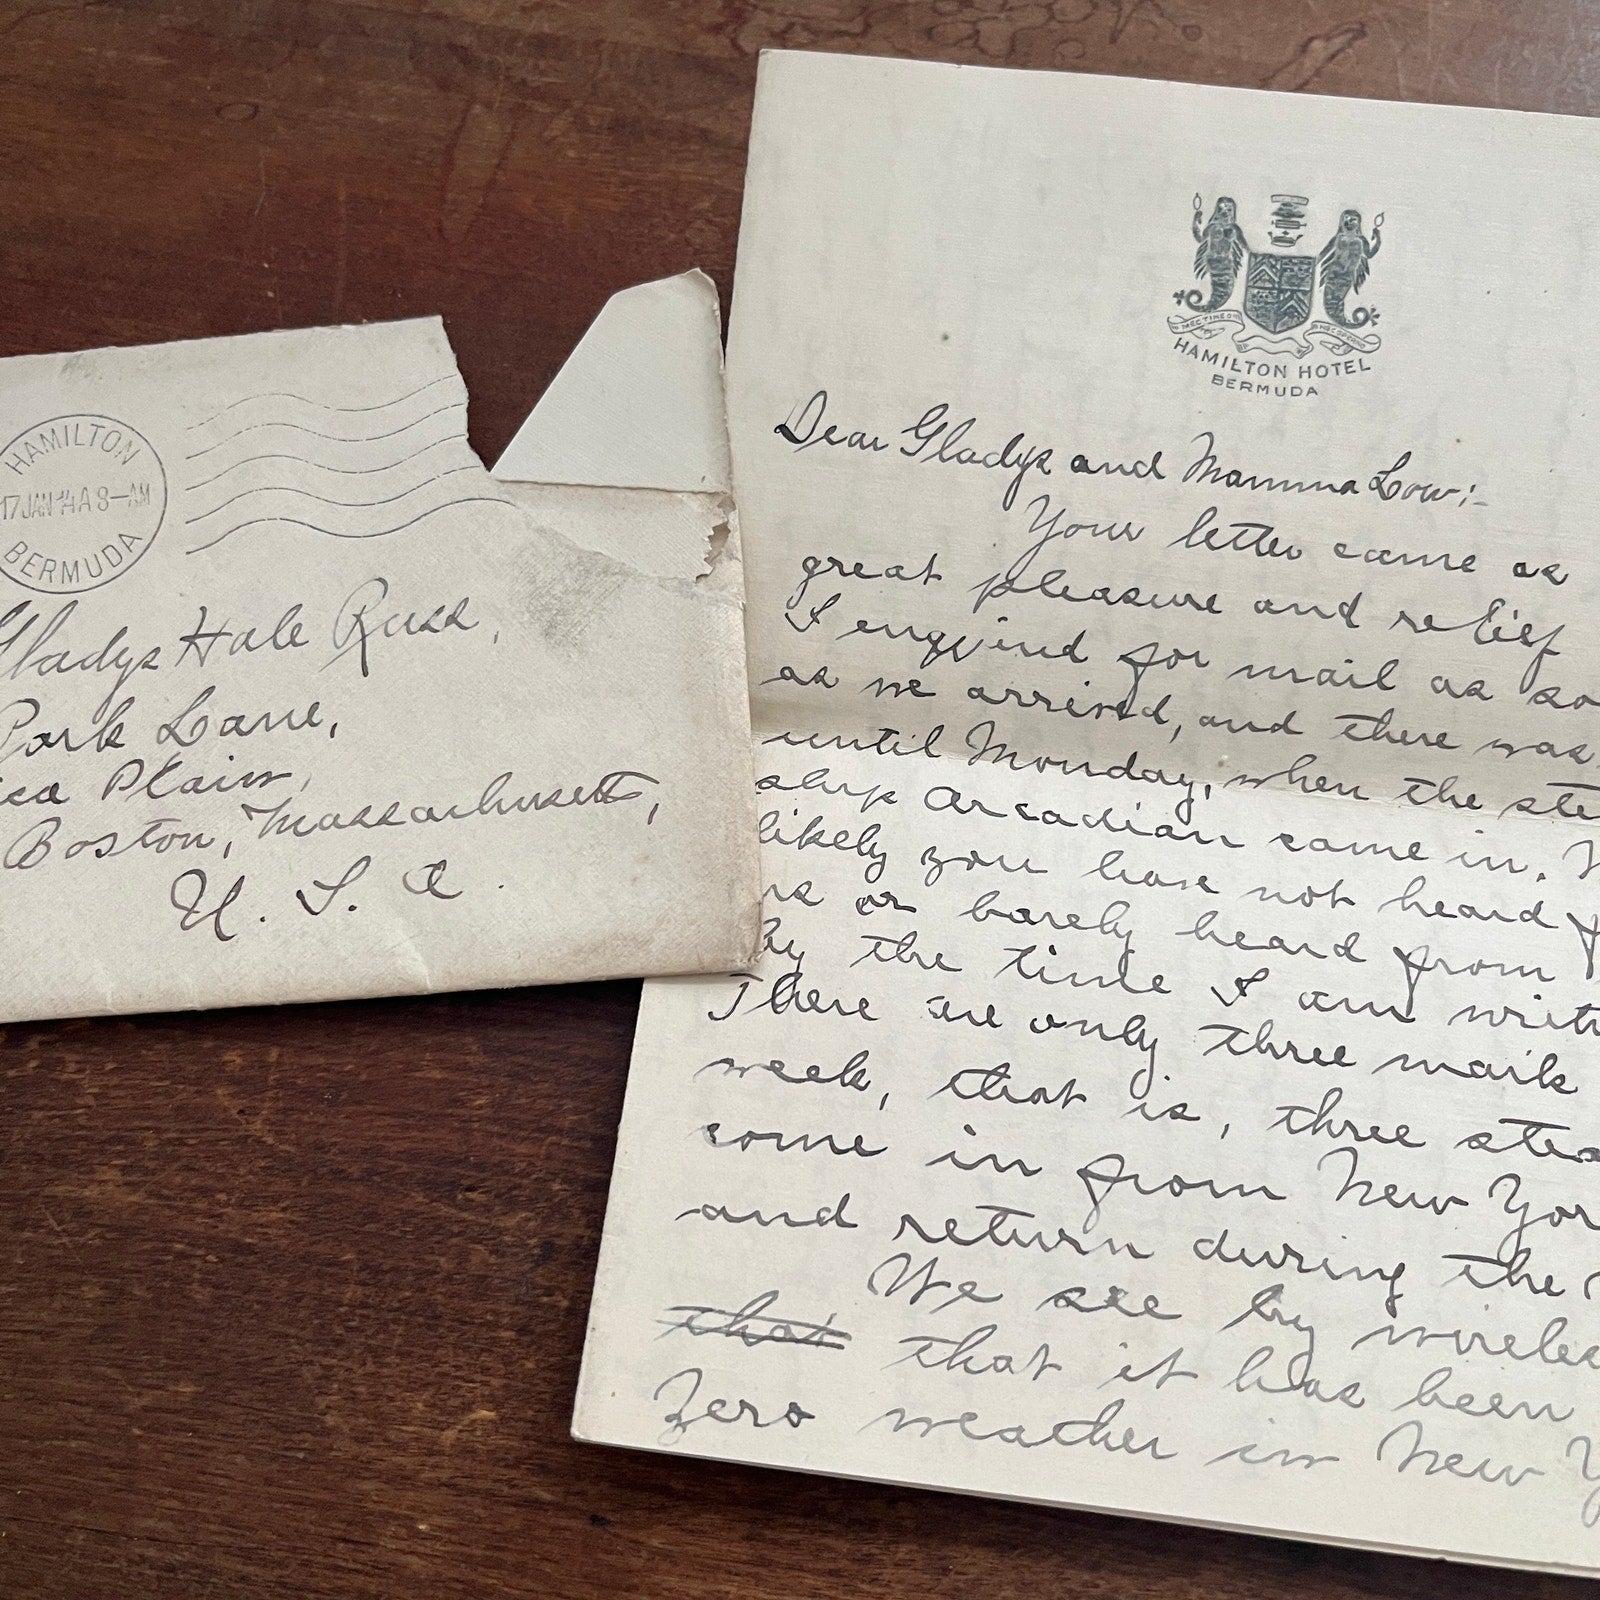 HAMILTON
17 JAN 14 A 8-AM
BERMUDA
Gladys Hale Russ,
Park Lane,
Plain,
Boston, Massachusetts,
U. S. A.
HAMILTON HOTEL
BERMUDA
Dear Gladys and Mamma Low:-
Your letter came as
great pleasure and relief
I enquired for mail as so
as we arrived, and there was
until Monday, when the ste
ship Arcadian came in.
likely you have not heard f
us or barely heard from
by the time I am writ
There are only three mails
week, that is, three stea
come in from New Yor
and return during the
We see by wireles
that that it has been
Zero weather in New Y